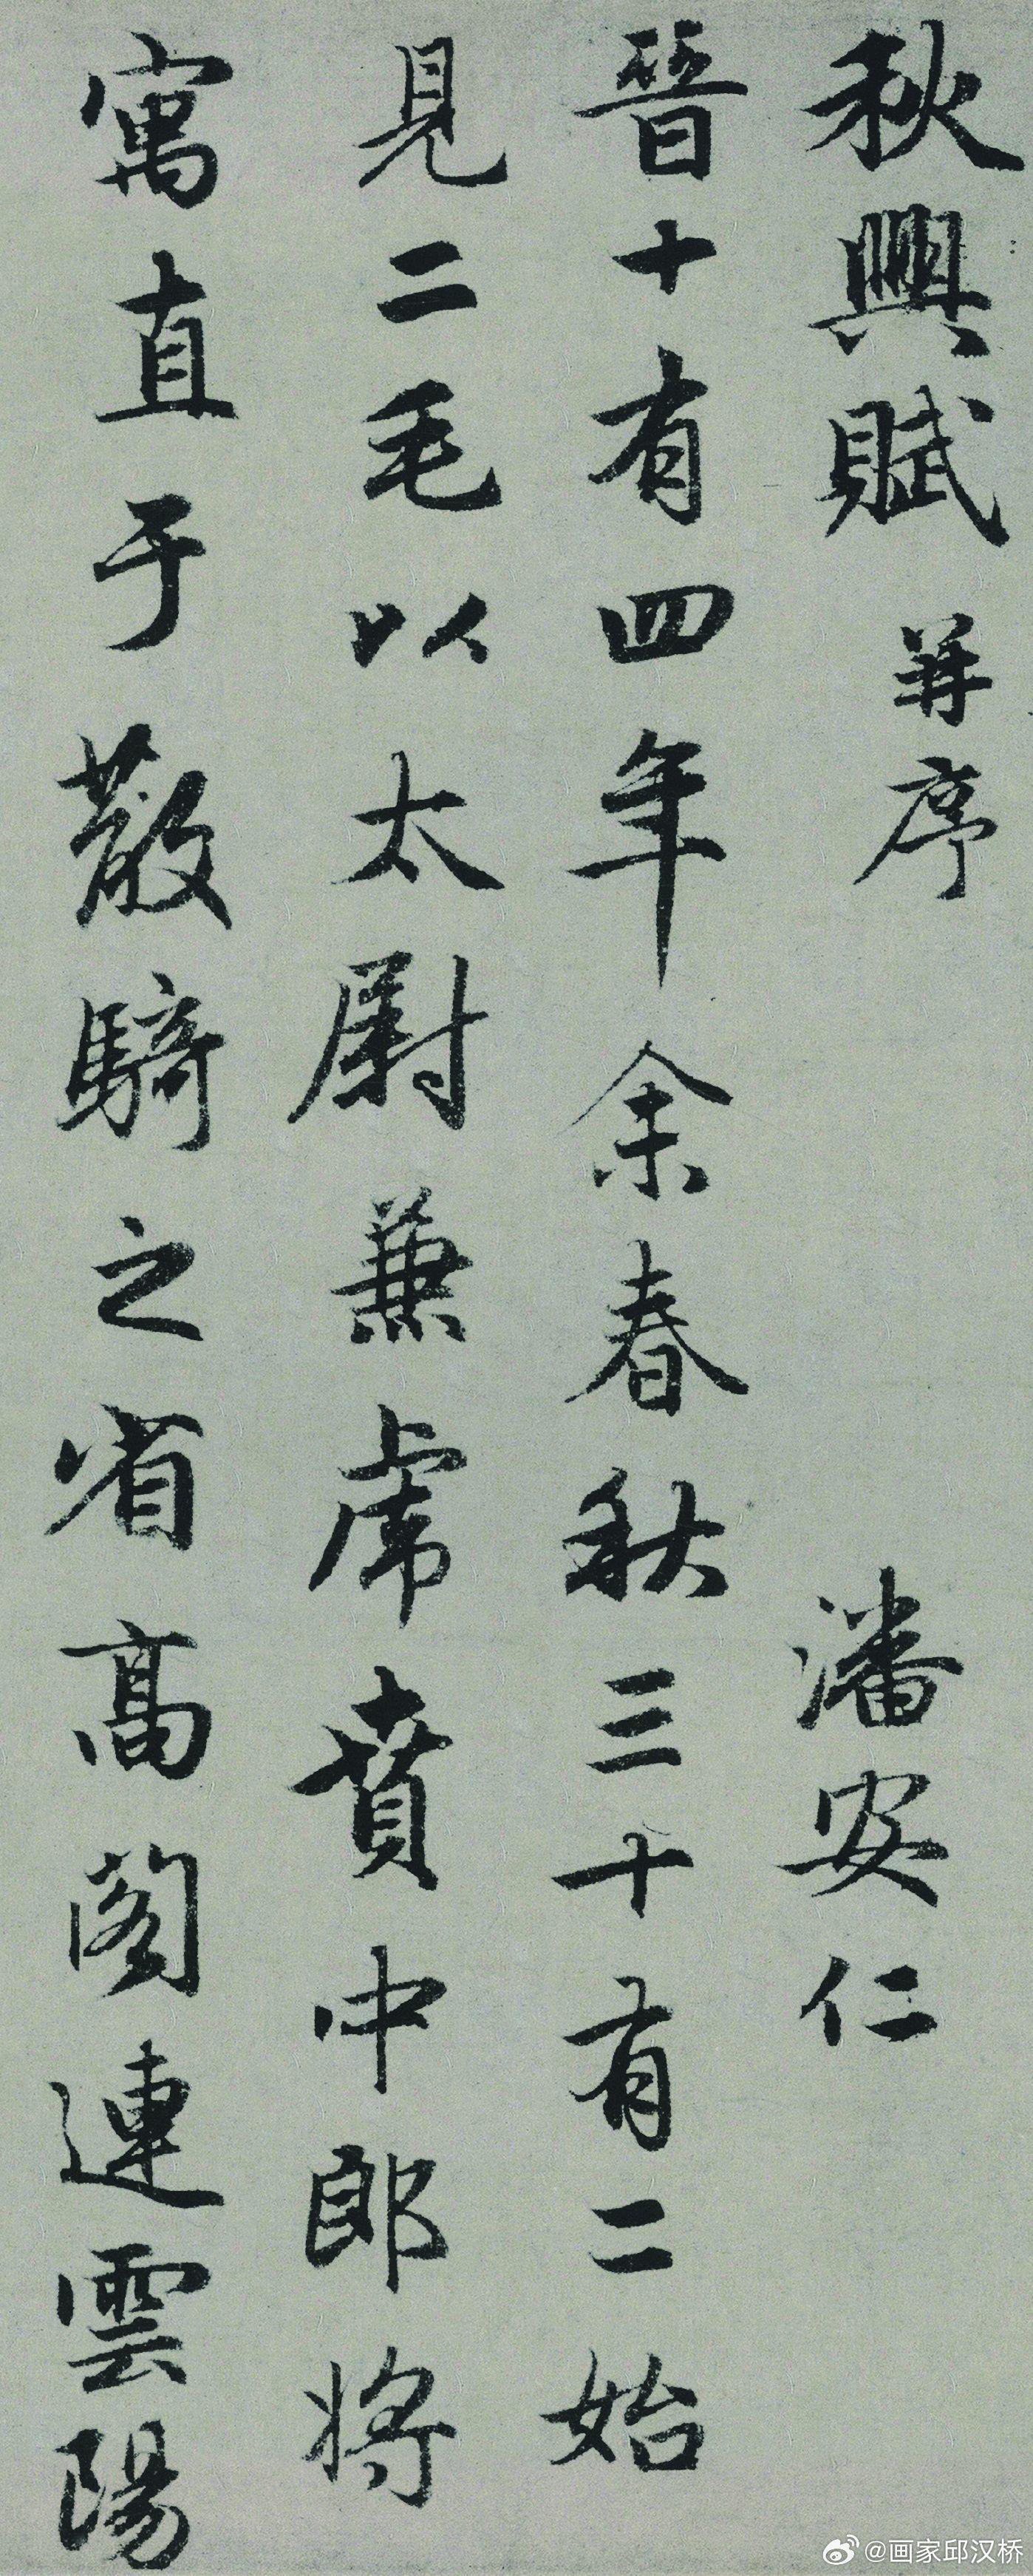 秋興賦 并序 潘安仁
晉十有四年余春秋三十有二始
見二毛以太尉兼虎賁中郎將
寓直于散騎之省高閣連雲陽
@画家邱汉桥